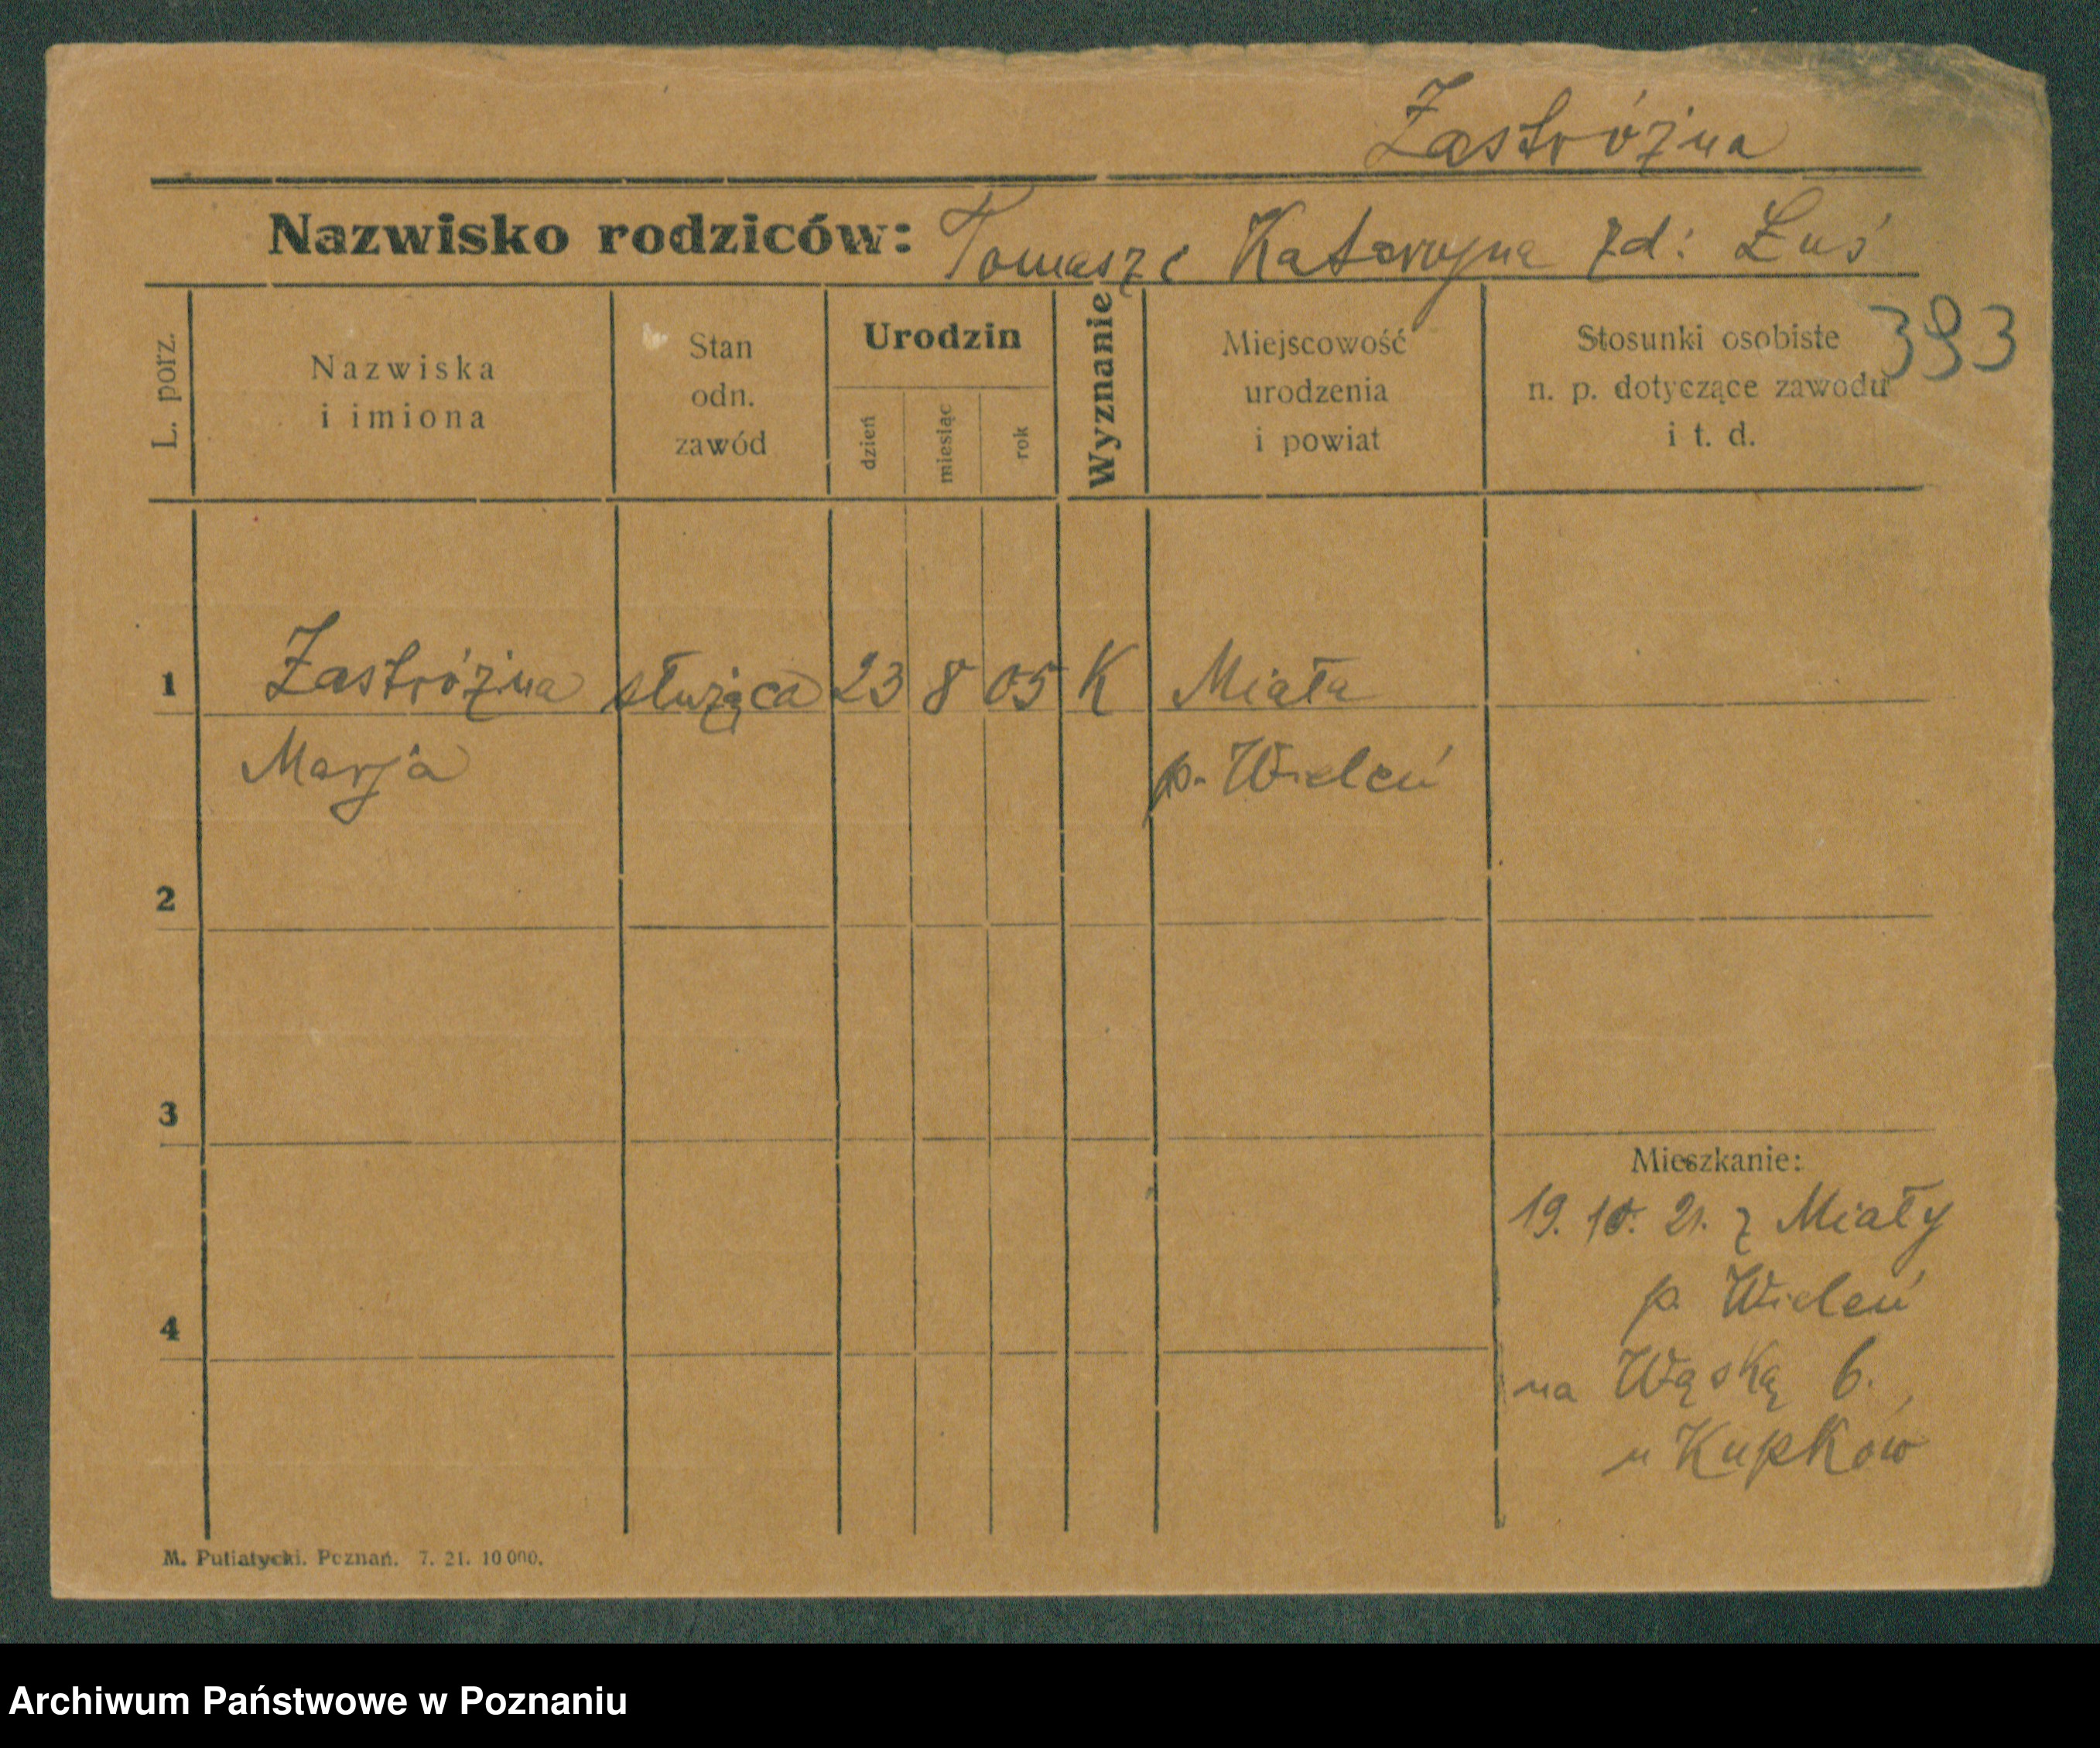 Zastróżna
Nazwisko rodziców: Tomasz i Katarzyna zd: Łuś
393
L. porz.
Nazwiska
i imiona
Stan
odn.
zawód
Urodzin
dzień
miesiąc
rok
Wyznanie
Miejscowość
urodzenia
i powiat
Stosunki osobiste
n. p. dotyczące zawodu
i t. d.
1 Zastróżna służąca 23 8 05 K Miała
Marja p. Wieleń
2
3
Mieszkanie:
19. 10. 21. z Miały
p. Wieleń
4
na Wąską 6.
u Kupków
M. Putiatycki. Poznań. 7. 21. 10 000.
Archiwum Państwowe w Poznaniu